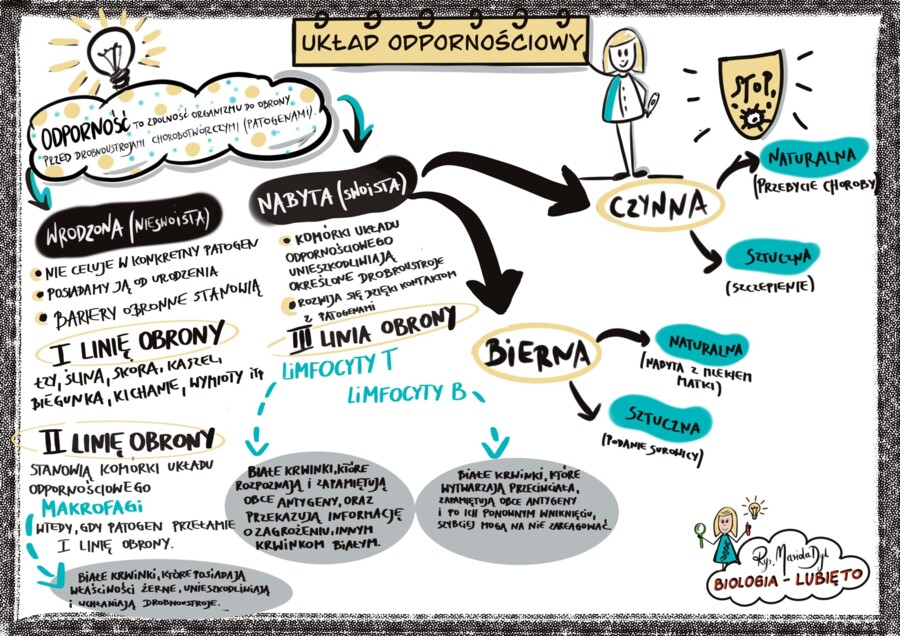 UKŁAD ODPORNOŚCIOWY
STOP.
ODPORNOŚĆ TO ZDOLNOŚĆ ORGANIZMU DO OBRONY
PRZED DROBNOUSTROJAMI CHOROBOTWÓRCZYMI (PATOGENAMI).
WRODZONA (NIESWOISTA)
NIE CELUJE W KONKRETNY PATOGEN
POSIADAMY JĄ OD URODZENIA
BARIERY OBRONNE STANOWIĄ
I LINIĘ OBRONY
ŁZY, ŚLINA, SKÓRA, KASZEL
BIEGUNKA, KICHANIE, WYMIOTY ITP
II LINIĘ OBRONY
STANOWIĄ KOMÓRKI UKŁADU
ODPORNOŚCIOWEGO
MAKROFAGI
WTEDY, GDY PATOGEN PRZEŁAMIE
I LINIĘ OBRONY.
BIAŁE KRWINKI, KTÓRE POSIADAJĄ
WŁAŚCIWOŚCI ŻERNE, UNIESZKODLIWIAJĄ
I WCHŁANIAJĄ DROBNOUSTROJE.
NABYTA (SWOISTA)
KOMÓRKI UKŁADU
ODPORNOŚCIOWEGO
UNIESZKODLIWIAJĄ
OKREŚLONE DROBNOUSTROJE
ROZWIJA SIĘ DZIĘKI KONTAKTOM
Z PATOGENAMI
III LINIA OBRONY
LIMFOCYTY T
LIMFOCYTY B
BIAŁE KRWINKI, KTÓRE
ROZPOZNAJĄ I ZAPAMIĘTUJĄ
OBCE ANTYGENY, ORAZ
PRZEKAZUJĄ INFORMACJĘ
O ZAGROŻENIU, INNYM
KRWINKOM BIAŁYM.
BIAŁE KRWINKI, KTÓRE
WYTWARZAJĄ PRZECIWCIAŁA,
ZAPAMIĘTUJĄ OBCE ANTYGENY
I PO ICH PONOWNYM WNIKNIĘCIU,
SZYBCIEJ MOGĄ NA NIE ZAREAGOWAĆ.
CZYNNA
NATURALNA
(PRZEBYCIE CHOROBY)
SZTUCZNA
(SZCZEPIENIE)
BIERNA
NATURALNA
(NABYTA Z MLEKIEM
MATKI)
SZTUCZNA
(PODANIE SUROWICY)
Ryś. Mariola Dyl
BIOLOGIA - LUBIĘTO